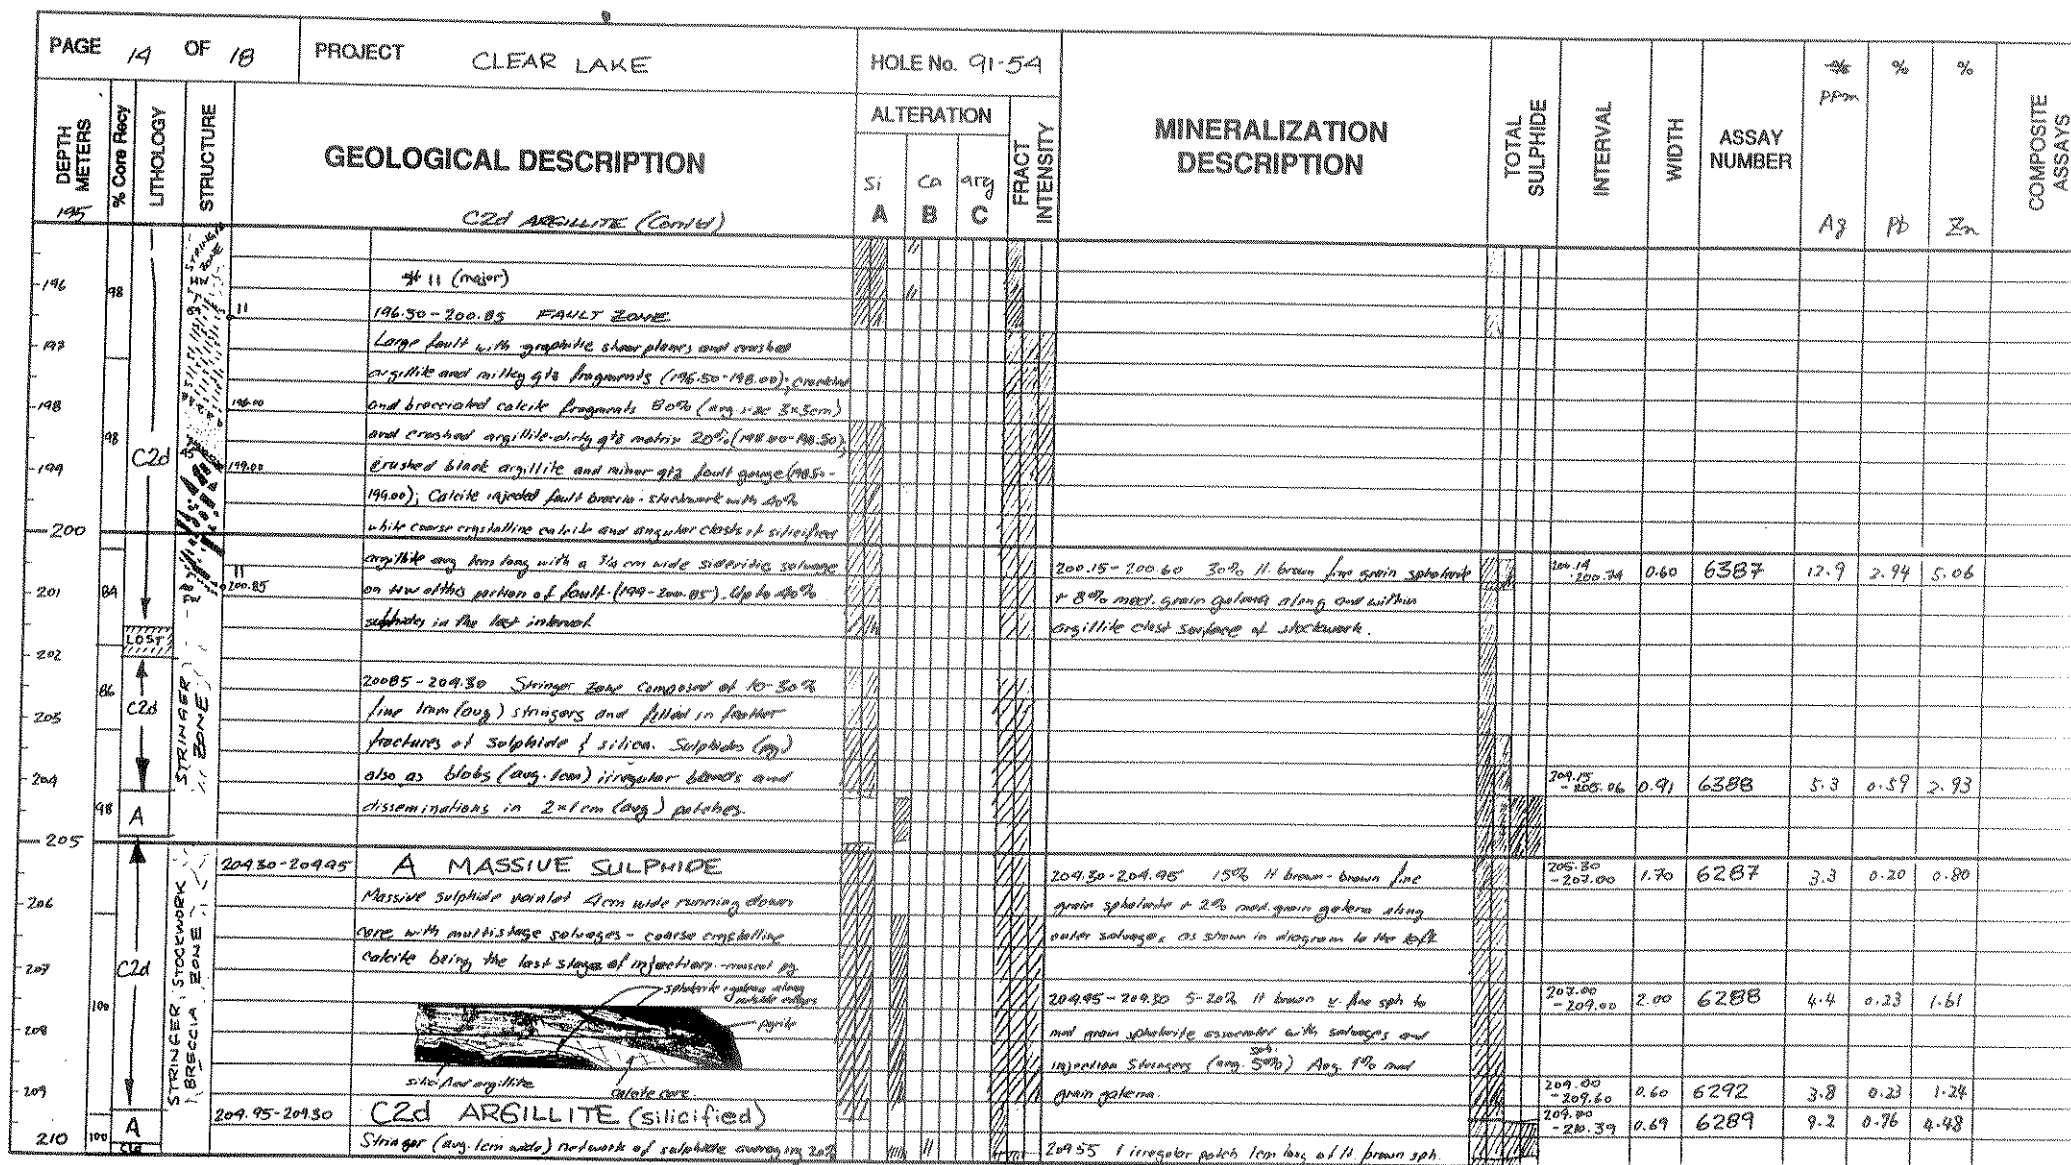 PAGE 14 OF 18
PROJECT CLEAR LAKE
HOLE No. 91-54
DEPTH METERS
195
% Core Recy
LITHOLOGY
STRUCTURE
GEOLOGICAL DESCRIPTION
C2d ARGILLITE (Cont'd)
ALTERATION
Si Ca arg
A B C
FRACT INTENSITY
MINERALIZATION DESCRIPTION
TOTAL SULPHIDE
INTERVAL
WIDTH
ASSAY NUMBER
% % %
ppm
Ag Pb Zn
COMPOSITE ASSAYS
196
197
198
199
200
201
202
203
204
205
206
207
208
209
210
98
98
84
86
98
100
100
C2d
LOST
C2d
A
C2d
A
C2d
STRINGER ZONE
STRINGER ZONE
STRINGER STOCKWORK
BRECCIA ZONE
11
198.00
199.00
11
200.85
# 11 (major)
196.50-200.85 FAULT ZONE
Large fault with graphitic shear planes and crushed
argillite and milky qtz fragments (196.50-198.00); crackled
and brecciated calcite fragments 80% (avg size 3x3cm)
and crushed argillite-dirty qtz matrix 20% (198.00-198.50),
crushed black argillite and minor qtz fault gouge (198.50-
199.00); Calcite injected fault breccia-stockwork with 40%
white coarse crystalline calcite and angular clasts of silicified
argillite avg 1cm long with a 3/4 cm wide sideritic selvage
on HW of this portion of fault (199-200.85). Up to 40%
sulphides in the last interval.
200.85-204.30 Stringer zone composed of 10-30%
fine 1mm (avg) stringers and filled in feather
fractures of sulphide & silica. Sulphides (py)
also as blobs (avg. 1cm) irregular blends and
disseminations in 2x1cm (avg) patches.
204.30-204.95 A MASSIVE SULPHIDE
Massive sulphide veinlet 4cm wide running down
core with multistage selvages - coarse crystalline
calcite being the last stage of injection.
sphalerite + galena along outside edges
pyrite
silicified argillite
calcite core
204.95-209.30 C2d ARGILLITE (silicified)
Stringer (avg. 1cm wide) network of sulphide averaging 20%
200.15-200.60 30% lt. brown fine grain sphalerite
+ 8% med. grain galena along and within
argillite clast surface of stockwork.
204.30-204.95 15% lt brown-brown fine
grain sphalerite + 2% med. grain galena along
outer selvages, as shown in diagram to the left
204.95-209.30 5-20% lt brown v. fine sph to
med grain sphalerite associated with selvages and
injection Stringers (avg. sph. 5%) Avg. 1% med
grain galena.
209.55 1 irregular patch 1cm long of lt. brown sph.
200.14 -200.74 0.60 6387 12.9 2.94 5.06
204.15 -205.06 0.91 6388 5.3 0.59 2.93
205.30 -207.00 1.70 6287 3.3 0.20 0.80
207.00 -209.00 2.00 6288 4.4 0.23 1.61
209.00 -209.60 0.60 6292 3.8 0.23 1.24
-210.39 0.69 6289 9.2 0.76 4.48